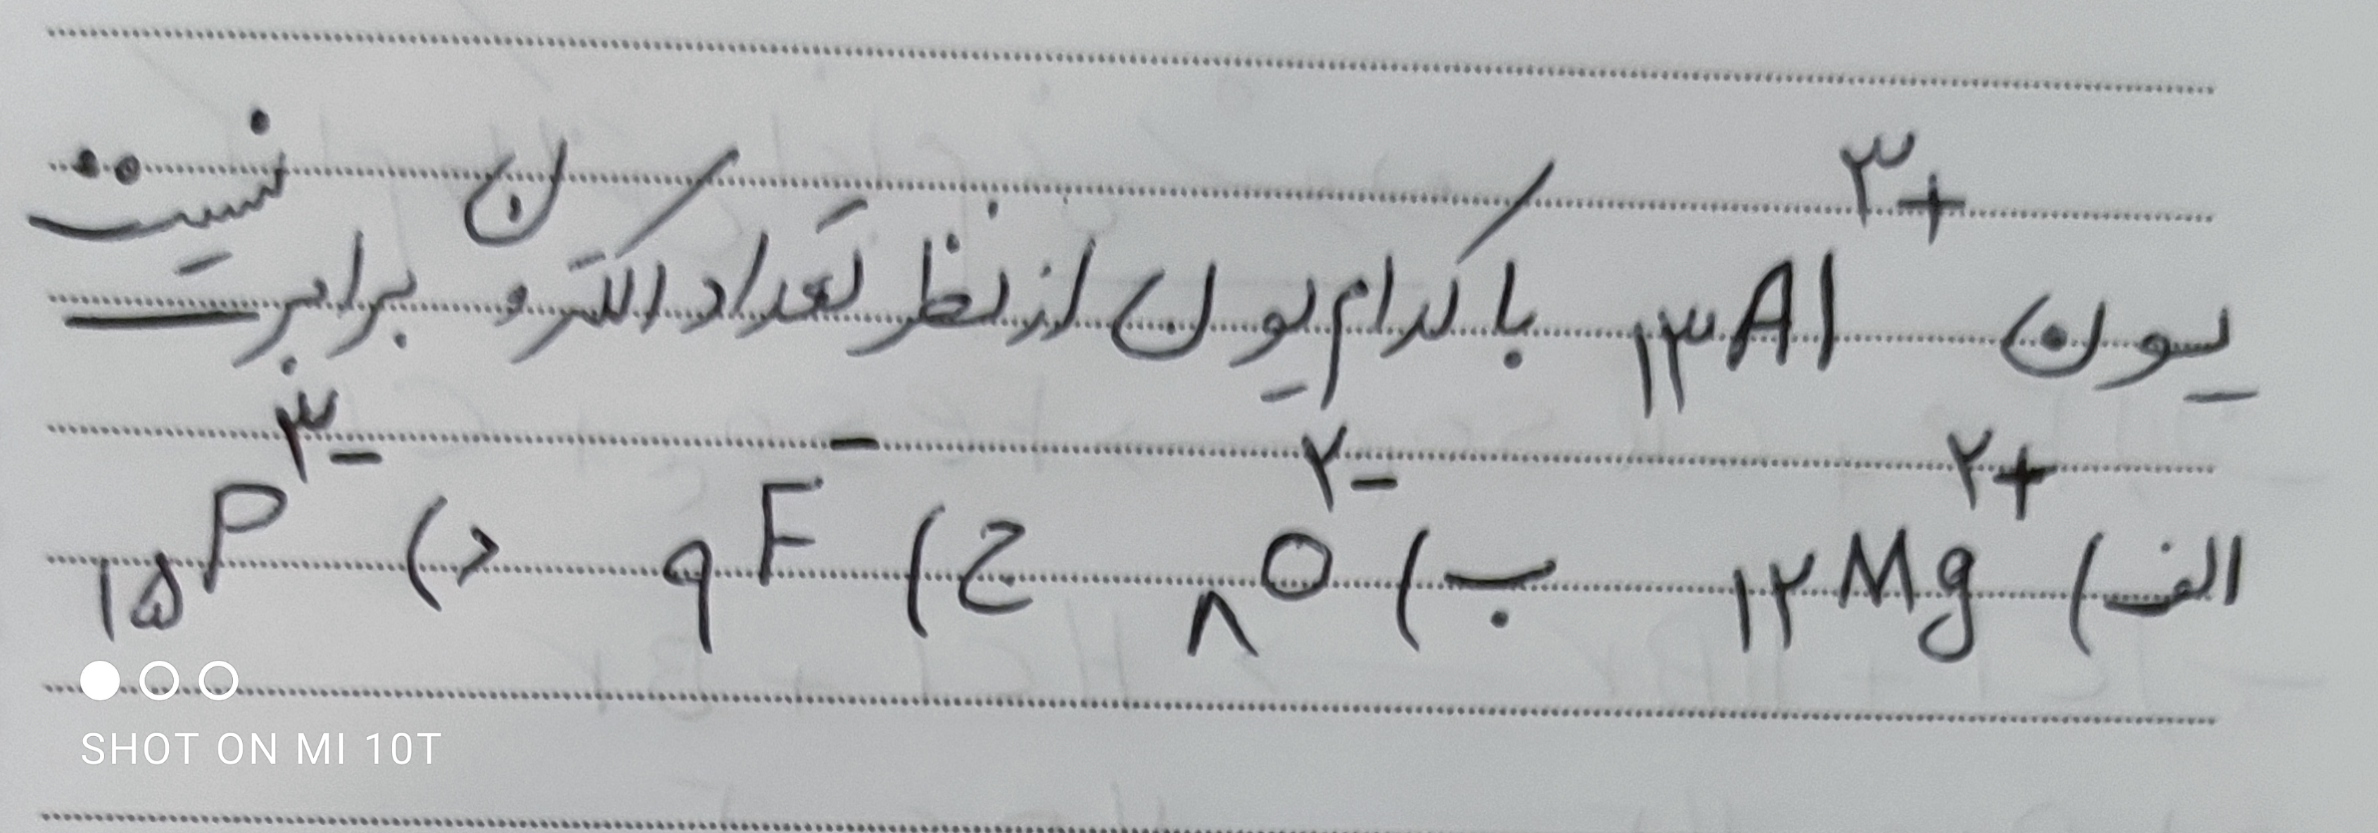 یون ₁₃Al³⁺ با کدام یون از نظر تعداد الکترون برابر نیست
الف) ₁₂Mg²⁺ ب) ₈O²⁻ ج) ₉F⁻ د) ₁₅P³⁻
SHOT ON MI 10T